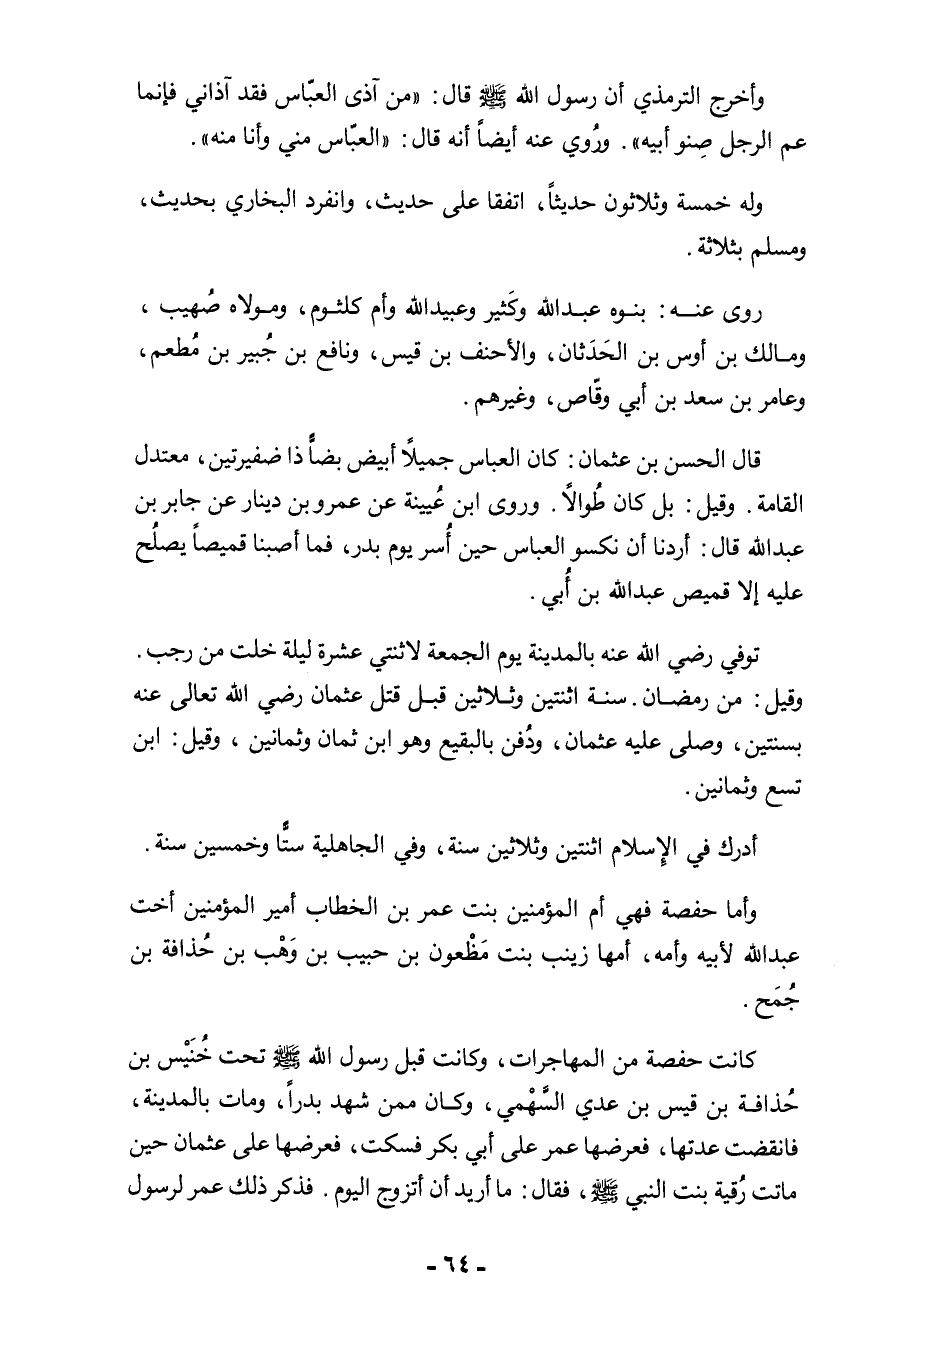 وأخرج الترمذي أن رسول الله ﷺ قال: «من آذى العبّاس فقد آذاني فإنما
عم الرجل صِنو أبيه». ورُوي عنه أيضاً أنه قال: «العبّاس مني وأنا منه».
وله خمسة وثلاثون حديثاً، اتفقا على حديث، وانفرد البخاري بحديث،
ومسلم بثلاثة.
روى عنه: بنوه عبدالله وكَثير وعبيدالله وأم كلثوم، ومولاه صُهيب،
ومالك بن أوس بن الحَدَثان، والأحنف بن قيس، ونافع بن جُبير بن مُطعم،
وعامر بن سعد بن أبي وقّاص، وغيرهم.
قال الحسن بن عثمان: كان العباس جميلاً أبيض بضاًّ ذا ضفيرتين، معتدل
القامة. وقيل: بل كان طُوالاً. وروى ابن عُيينة عن عمرو بن دينار عن جابر بن
عبدالله قال: أردنا أن نكسو العباس حين أُسر يوم بدر، فما أصبنا قميصاً يصلُح
عليه إلا قميص عبدالله بن أُبي.
توفي رضي الله عنه بالمدينة يوم الجمعة لاثنتي عشرة ليلة خلت من رجب.
وقيل: من رمضان. سنة اثنتين وثلاثين قبل قتل عثمان رضي الله تعالى عنه
بسنتين، وصلى عليه عثمان، ودُفن بالبقيع وهو ابن ثمان وثمانين، وقيل: ابن
تسع وثمانين.
أدرك في الإسلام اثنتين وثلاثين سنة، وفي الجاهلية ستًّا وخمسين سنة.
وأما حفصة فهي أم المؤمنين بنت عمر بن الخطاب أمير المؤمنين أخت
عبدالله لأبيه وأمه، أمها زينب بنت مَظْعون بن حبيب بن وَهْب بن حُذافة بن
جُمَح.
كانت حفصة من المهاجرات، وكانت قبل رسول الله ﷺ تحت خُنَيْس بن
حُذافة بن قيس بن عدي السَّهْمي، وكان ممن شهد بدراً، ومات بالمدينة،
فانقضت عدتها، فعرضها عمر على أبي بكر فسكت، فعرضها على عثمان حين
ماتت رُقية بنت النبي ﷺ، فقال: ما أريد أن أتزوج اليوم. فذكر ذلك عمر لرسول
- ٦٤ -